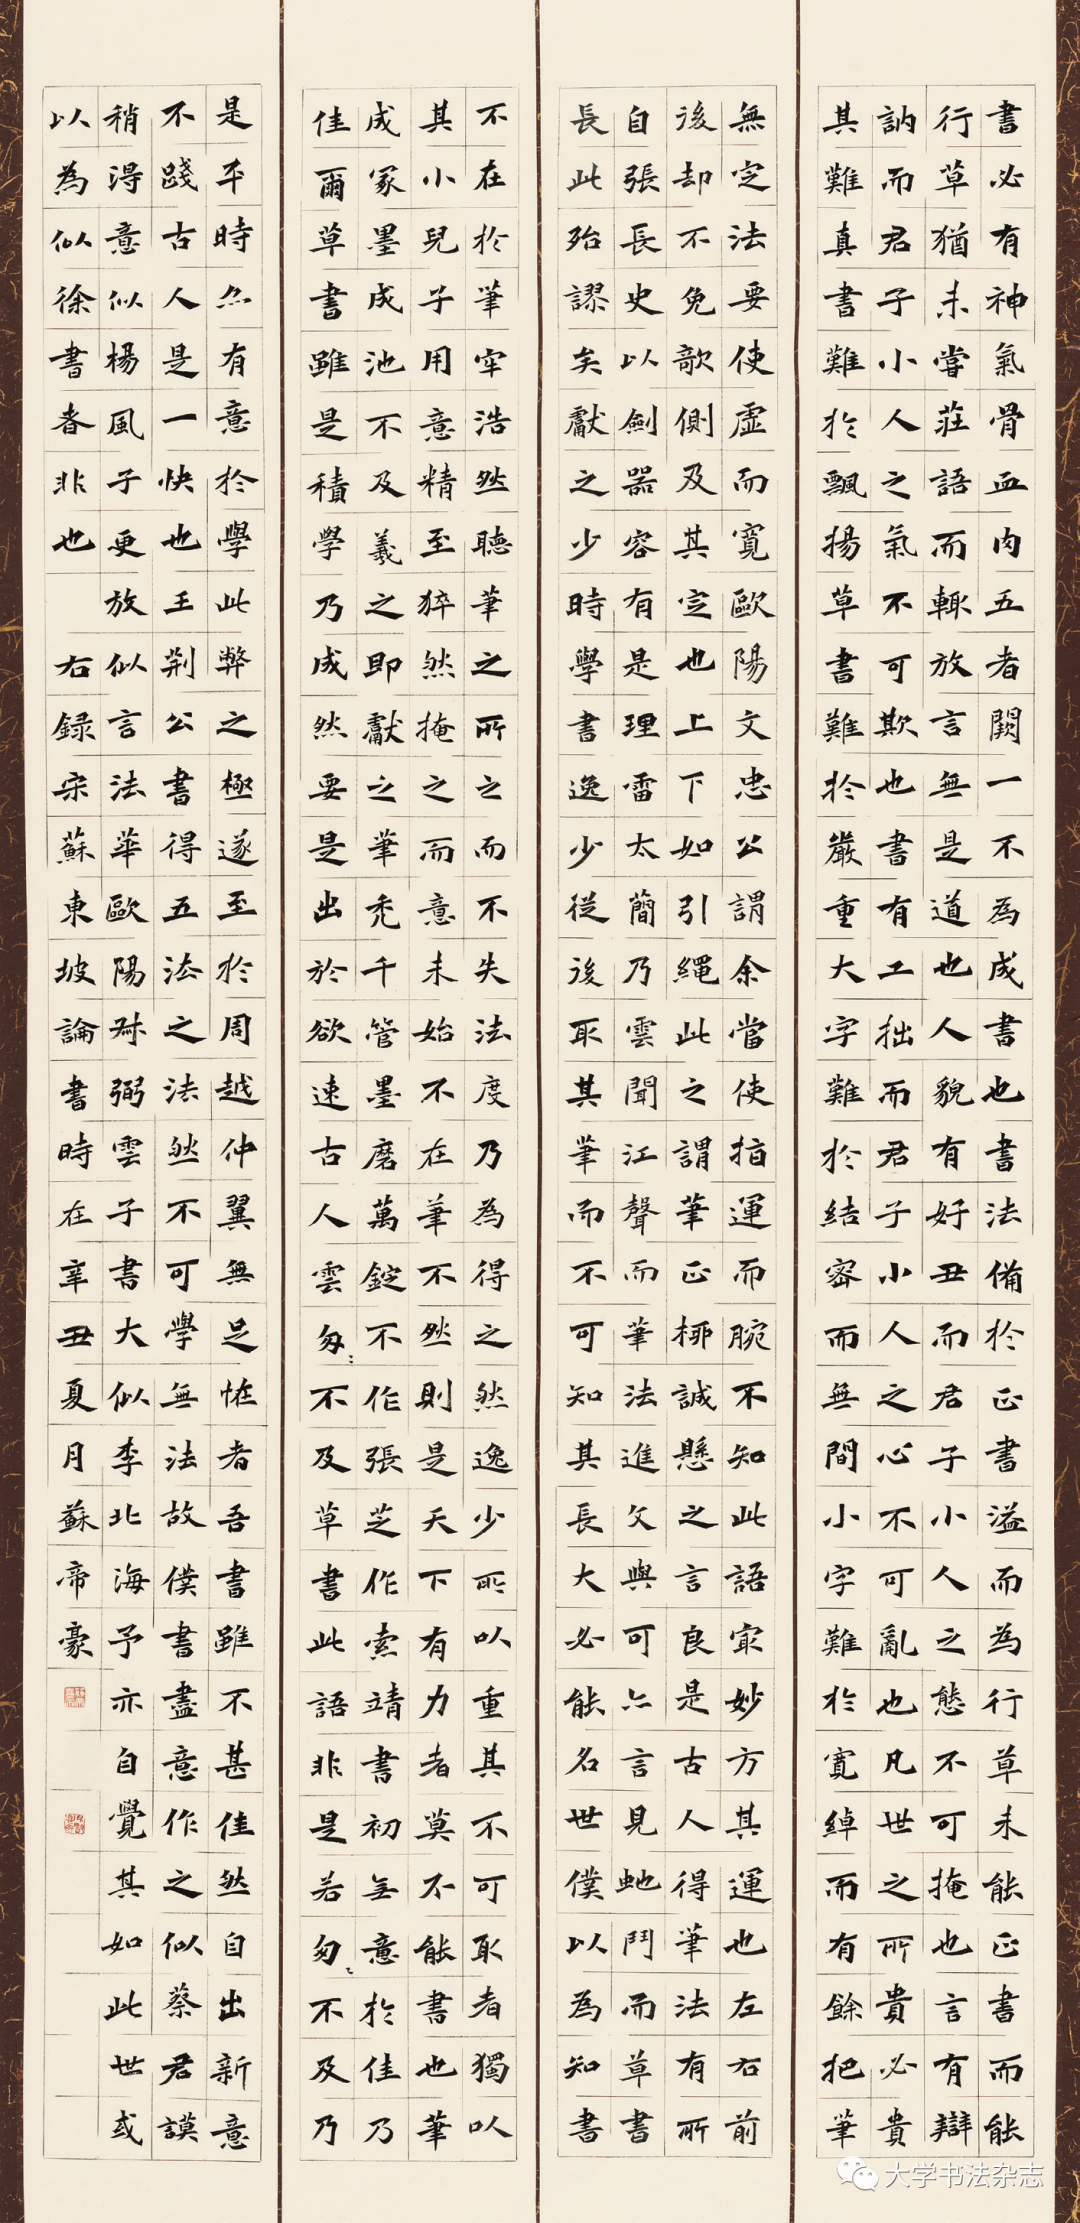 書必有神氣骨血肉五者闕一不為成書也書法備於正書溢而為行草未能正書而能
行草猶未嘗莊語而輒放言無是道也人貌有好丑而君子小人之態不可掩也言有辯
訥而君子小人之氣不可欺也書有工拙而君子小人之心不可亂也凡世之所貴必貴
其難真書難於飄揚草書難於嚴重大字難於結密而無間小字難於寬綽而有餘把筆
無定法要使虛而寬歐陽文忠公謂余當使指運而腕不知此語最妙方其運也左右前
後却不免欹側及其定也上下如引繩此之謂筆正柳誠懸之言良是古人得筆法有所
自張長史以劍器容有是理雷太簡乃雲聞江聲而筆法進文與可亦言見蛇鬥而草書
長此殆謬矣獻之少時學書逸少從後取其筆而不可知其長大必能名世僕以為知書
不在於筆牢浩然聽筆之所之而不失法度乃為得之然逸少所以重其不可取者獨以
其小兒子用意精至猝然掩之而意未始不在筆不然則是天下有力者莫不能書也筆
成冢墨成池不及羲之即獻之筆禿千管墨磨萬錠不作張芝作索靖書初无意於佳乃
佳爾草書雖是積學乃成然要是出於欲速古人雲匆〻不及草書此語非是若匆〻不及乃
是平時亦有意於學此弊之極遂至於周越仲翼無足怪者吾書雖不甚佳然自出新意
不踐古人是一快也王荊公書得无法之法然不可學無法故僕書盡意作之似蔡君謨
稍得意似楊風子更放似言法華歐陽叔弼雲子書大似李北海予亦自覺其如此世或
以為似徐書者非也 右錄宋蘇東坡論書時在辛丑夏月蘇帝豪
大学书法杂志